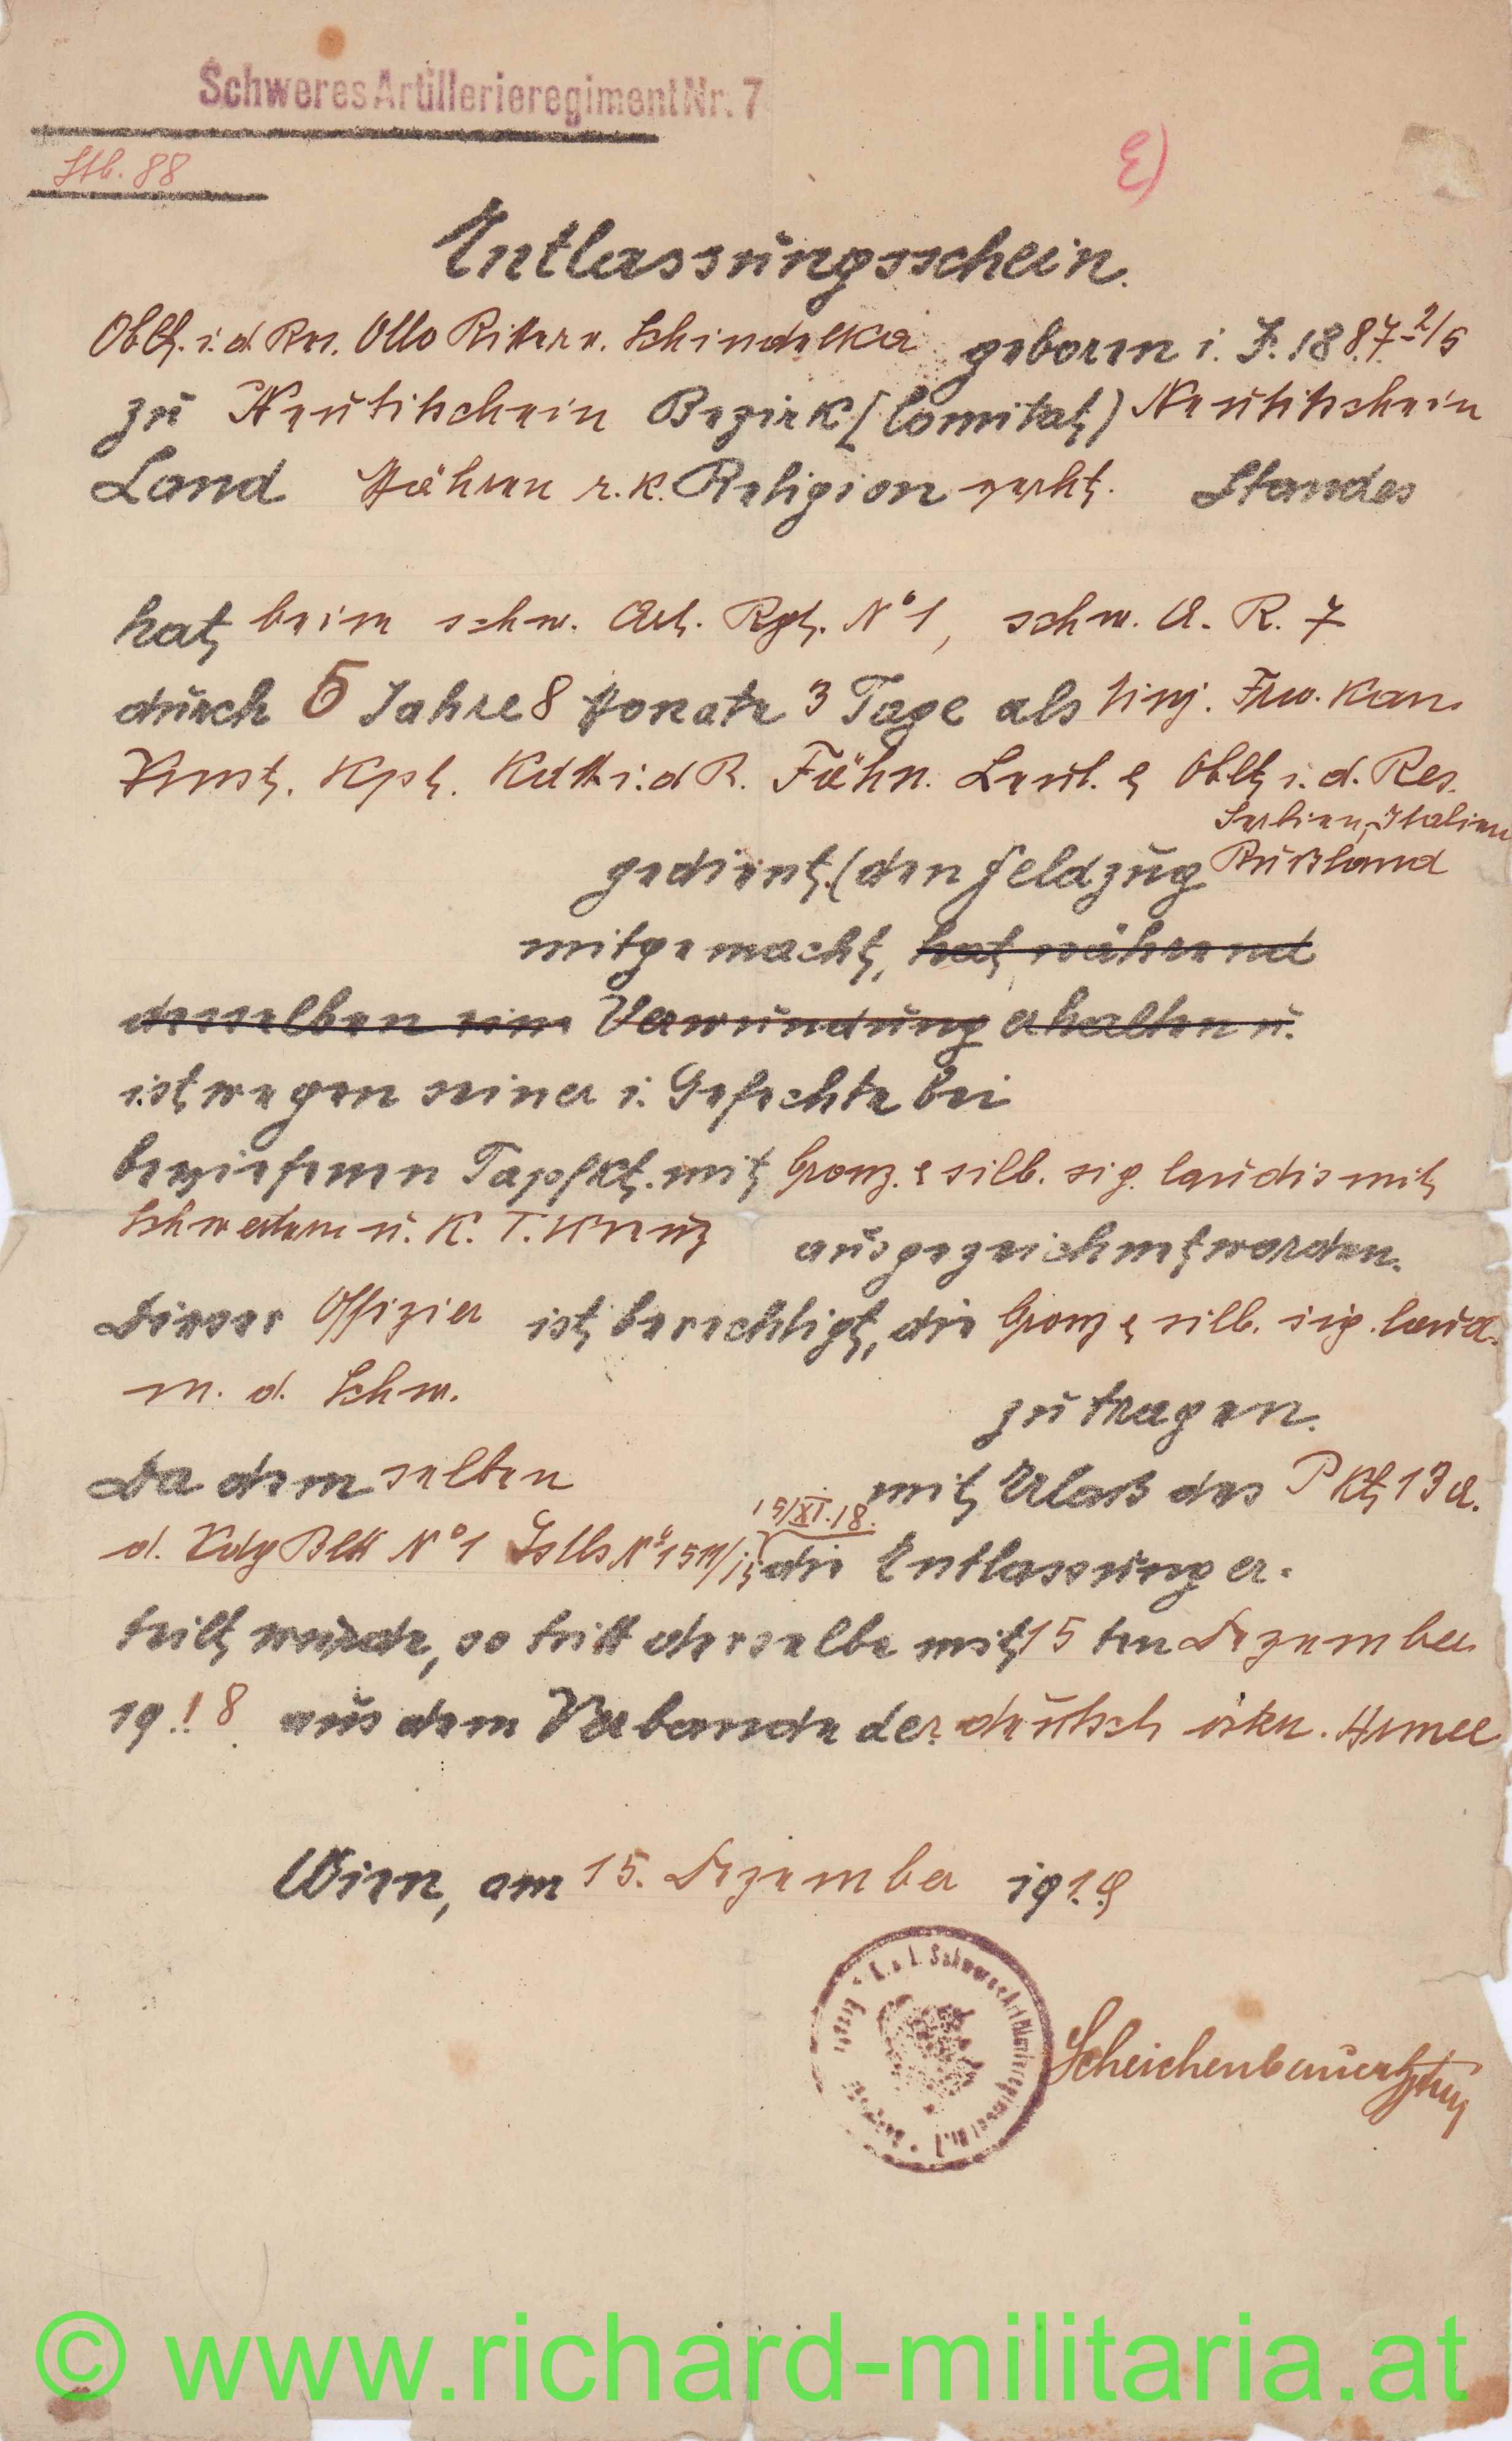 Schweres Artillerieregiment Nr. 7
Stb. 88
E)
Entlassungsschein.
Oblt. i. d. Res. Otto Ritter v. Schindelka geboren i. J. 1887 2/5
zu Neutitschein Bezirk (Comitat) Neutitschein
Land Mähren r. k. Religion verht. Standes
hat beim schw. Art. Rgt. No 1, schw. A. R. 7
durch 5 Jahre 8 Monate 3 Tage als Einj. Frw. Kan.
Vmst. Kpl. Kdtt i. d R. Fähn. Leut. & Oblt i. d. Res.
Serbien, Italien
gedient. (den Feldzug Rußland
mitgemacht, hat während
desselben eine Verwundung erhalten u.
ist wegen seiner i. Gefechte bei
bewiesenen Tapfkt. mit bronz. & silb. sig. laudis mit
Schwertern u. K. T. Kreuz ausgezeichnet worden.
Dieser Offizier ist berechtigt, die bronz & silb. sig. laud.
m. d. Schw. zu tragen.
Da dem selben mit Erlaß des P Kt 13 a.
15/XI. 18.
d. Vdg Bltt No 1 die Entlassung er-
teilt wurde, so tritt derselbe mit 15 ten Dezember
1918 aus dem Verbande der deutsch österr. Armee
Wien, am 15. Dezember 1918
k. u. k. Schweres Artillerieregiment Nr. 7
Scheichenbauer
© www.richard-militaria.at